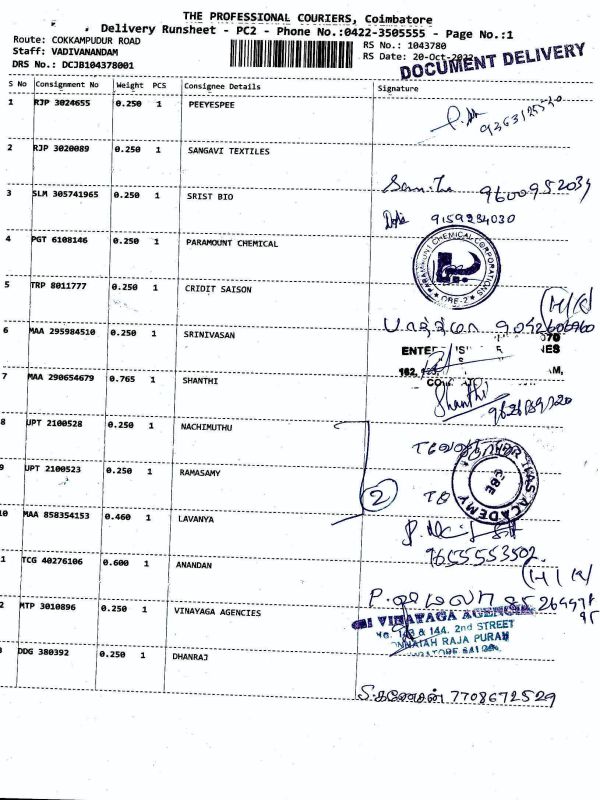 THE PROFESSIONAL COURIERS, Coimbatore
Delivery Runsheet - PC2 - Phone No.:0422-3505555 - Page No.:1
Route: COKKAMPUDUR ROAD
Staff: VADIVANANDAM
DRS No.: DCJB104378001
RS No.: 1043780
RS Date: 20-Oct-2022
DOCUMENT DELIVERY
S No Consignment No Weight PCS Consignee Details Signature
1 RJP 3024655 0.250 1 PEEYESPEE
2 RJP 3020089 0.250 1 SANGAVI TEXTILES
9600952034
3 SLM 305741965 0.250 1 SRIST BIO
9159234030
4 PGT 6108146 0.250 1 PARAMOUNT CHEMICAL
PARAMOUNT CHEMICAL CORPORATIONS
CBE-2
5 TRP 8011777 0.250 1 CRIDIT SAISON
(H/R)
9042606960
6 MAA 295984510 0.250 1 SRINIVASAN
7 MAA 290654679 0.765 1 SHANTHI
Shanthi
8 UPT 2100528 0.250 1 NACHIMUTHU
9 UPT 2100523 0.250 1 RAMASAMY
2
ACADEMY
10 MAA 858354153 0.460 1 LAVANYA
9655553502
1 TCG 40276106 0.600 1 ANANDAN
(H/R)
2 MTP 3010896 0.250 1 VINAYAGA AGENCIES
VINAYAGA AGENCIES
& 144, 2nd STREET
RAJA PURAM
3 DDG 380392 0.250 1 DHANRAJ
S.கணேசன் 7708672529